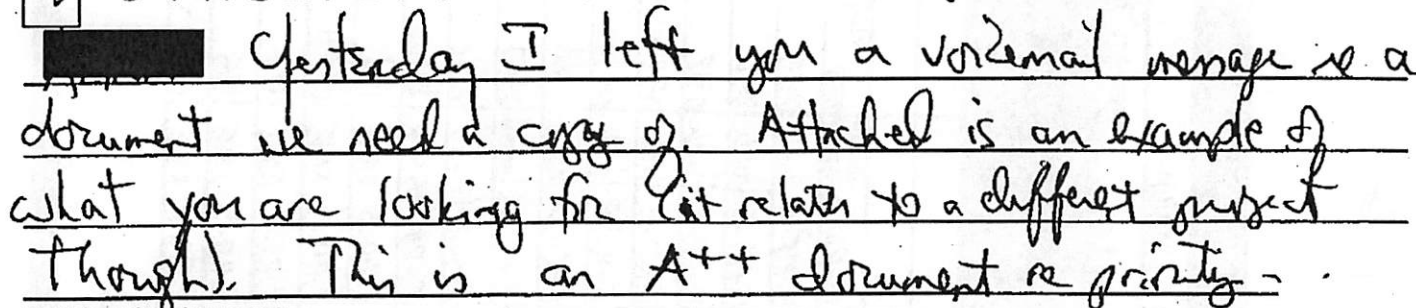 Yesterday I left you a voicemail message re a
document we need a copy of. Attached is an example of
what you are looking for (it relates to a different project
though). This is an A++ document re priority -.